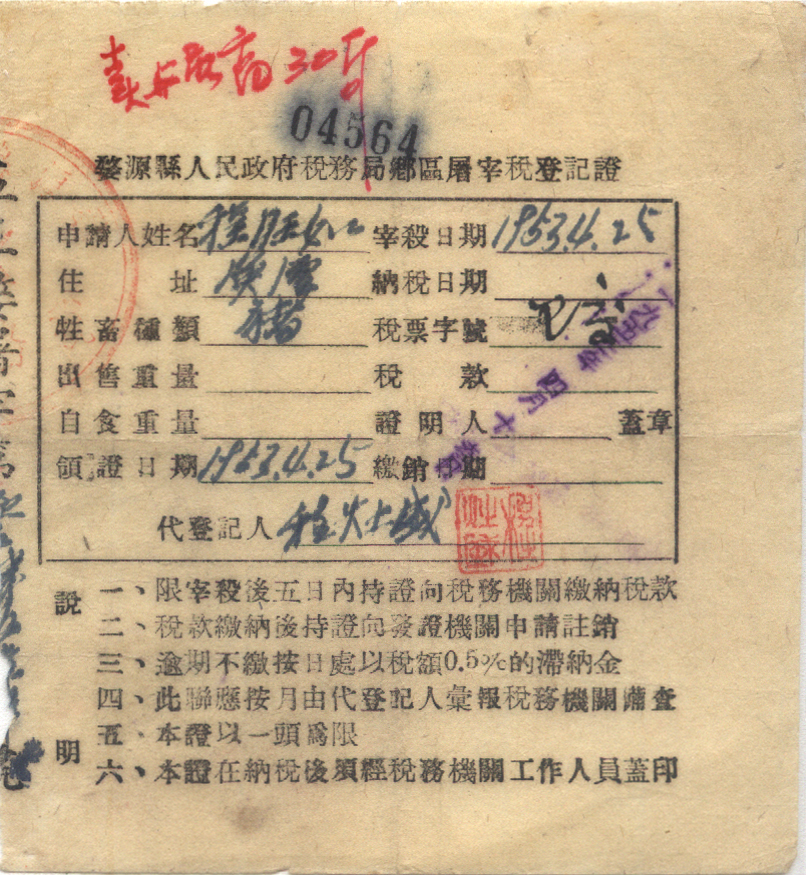 30斤
04564
婺源縣人民政府稅務局鄉區屠宰稅登記證
申請人姓名 程旺 宰殺日期 1953.4.25
住址 納稅日期
牲畜種類 猪 稅票字號
出售重量 稅款
自食重量 證明人 蓋章
領證日期 1953.4.25 繳銷日期
代登記人 程
說明
一、限宰殺後五日內持證向稅務機關繳納稅款
二、稅款繳納後持證向發證機關申請註銷
三、逾期不繳按日處以稅額0.5%的滯納金
四、此聯應按月由代登記人彙報稅務機關備查
五、本證以一頭爲限
六、本證在納稅後須經稅務機關工作人員蓋印